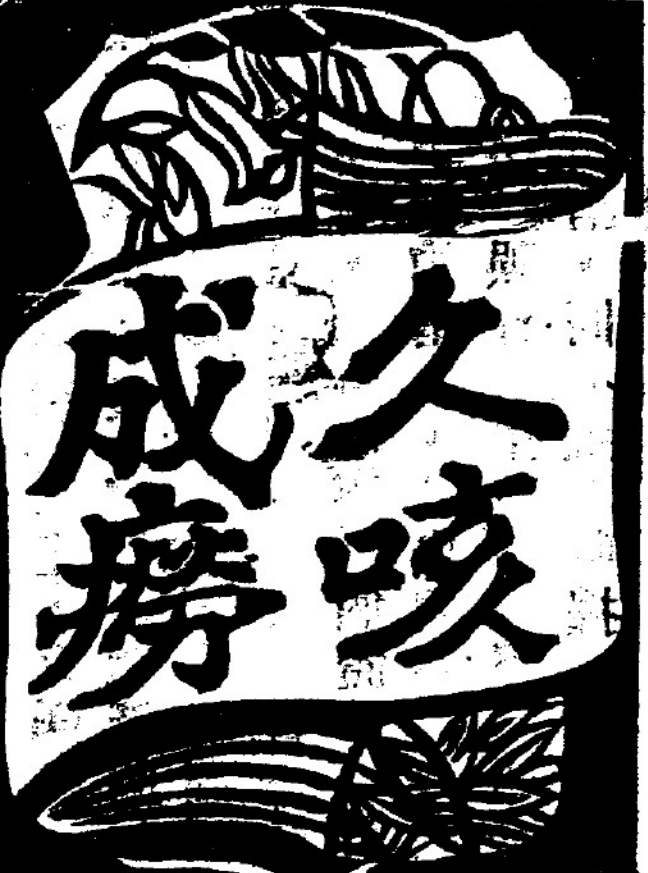 久咳
成癆